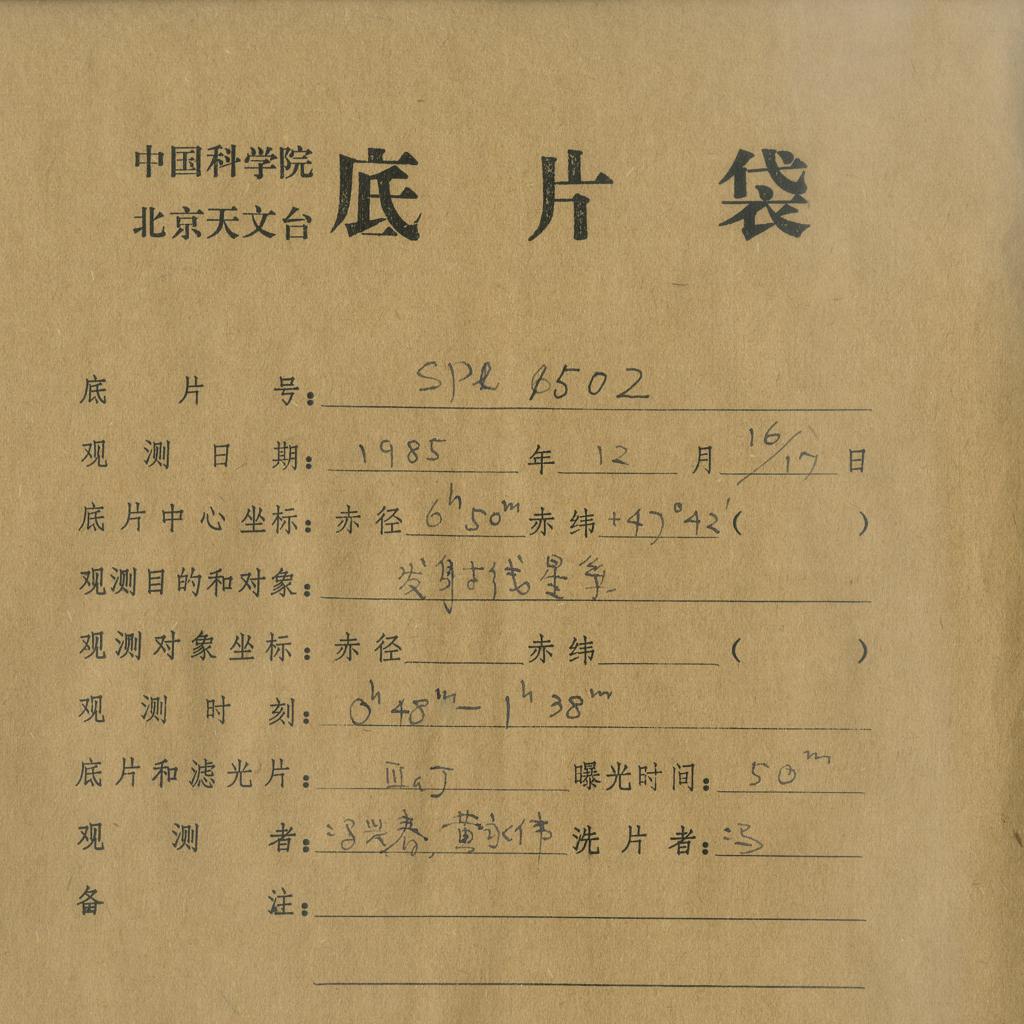 中国科学院
北京天文台
底片袋
底片号：SPL 6502
观测日期：1985年12月16/17日
底片中心坐标：赤径6ʰ50ᵐ赤纬+47°42′(  )
观测目的和对象：发射线星系
观测对象坐标：赤径 赤纬 (  )
观测时刻：0ʰ48ᵐ－1ʰ38ᵐ
底片和滤光片：ⅢaJ 曝光时间：50ᵐ
观测者：冯兴春，黄永伟 洗片者：冯
备注：